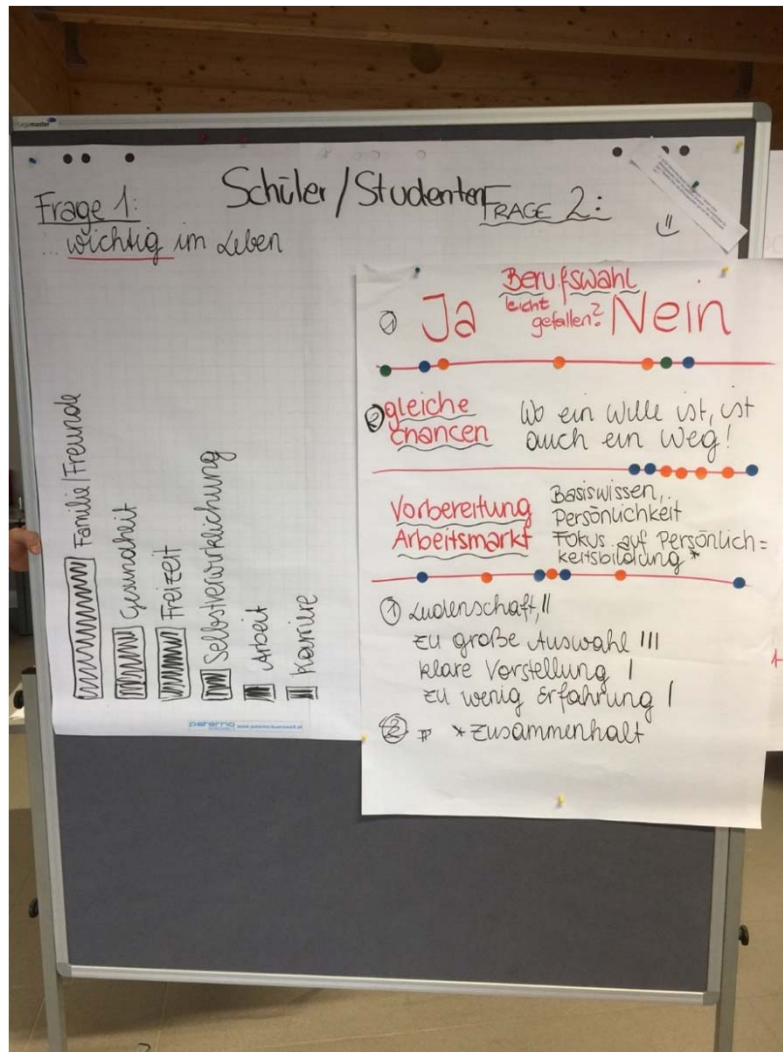 Schüler/Studenten
Frage 1:
... wichtig im Leben
Familie/Freunde
Gesundheit
Freizeit
Selbstverwirklichung
Arbeit
Karriere
FRAGE 2:
Berufswahl
leicht
gefallen?
① Ja Nein
② gleiche
chancen
Wo ein Wille ist, ist
auch ein Weg!
Vorbereitung
Arbeitsmarkt
Basiswissen,
Persönlichkeit
Fokus auf Persönlich=
keitsbildung *
① Leidenschaft, II
zu große Auswahl III
klare Vorstellung I
zu wenig Erfahrung I
② * Zusammenhalt